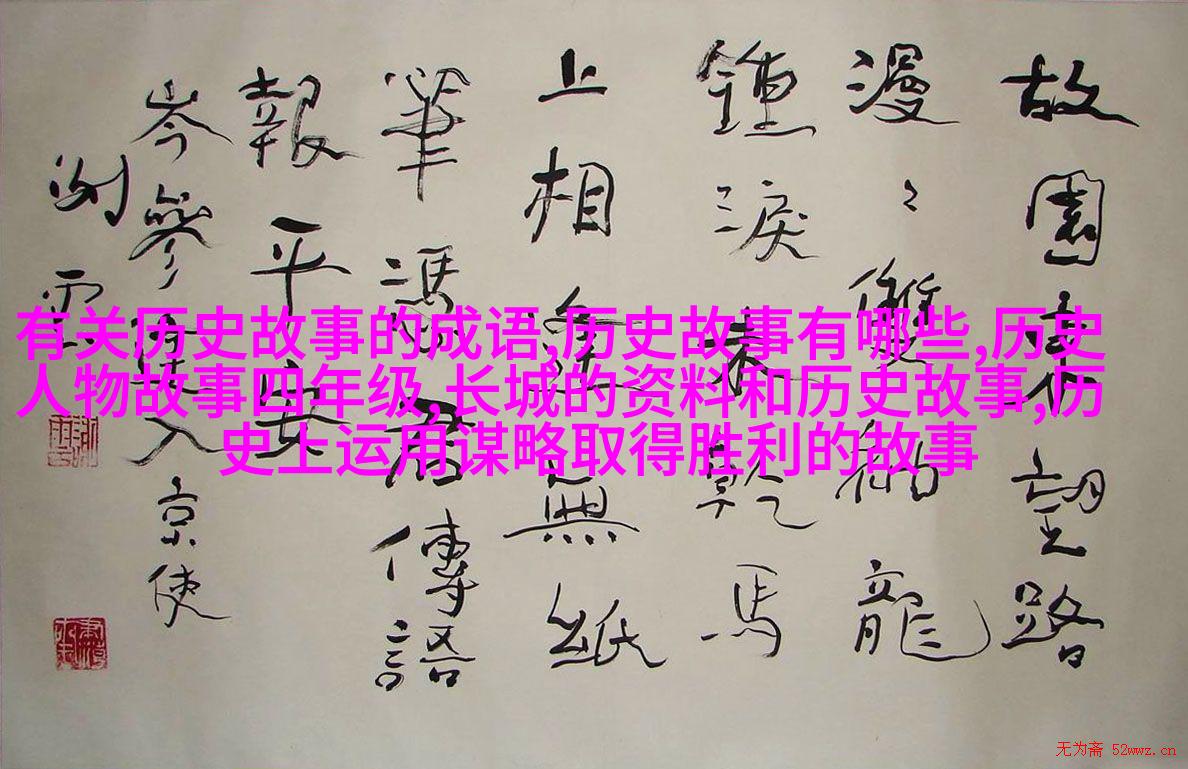 故園東望路
漫〻雙袖龍
鍾淚未乾馬
上相逢無紙
筆馮君傳語
報平安
岑參逢入京使
有关历史故事的成语,历史故事有哪些,历史
人物故事四年级,长城的资料和历史故事,历
史上运用谋略取得胜利的故事
无为斋 52wwz.cn